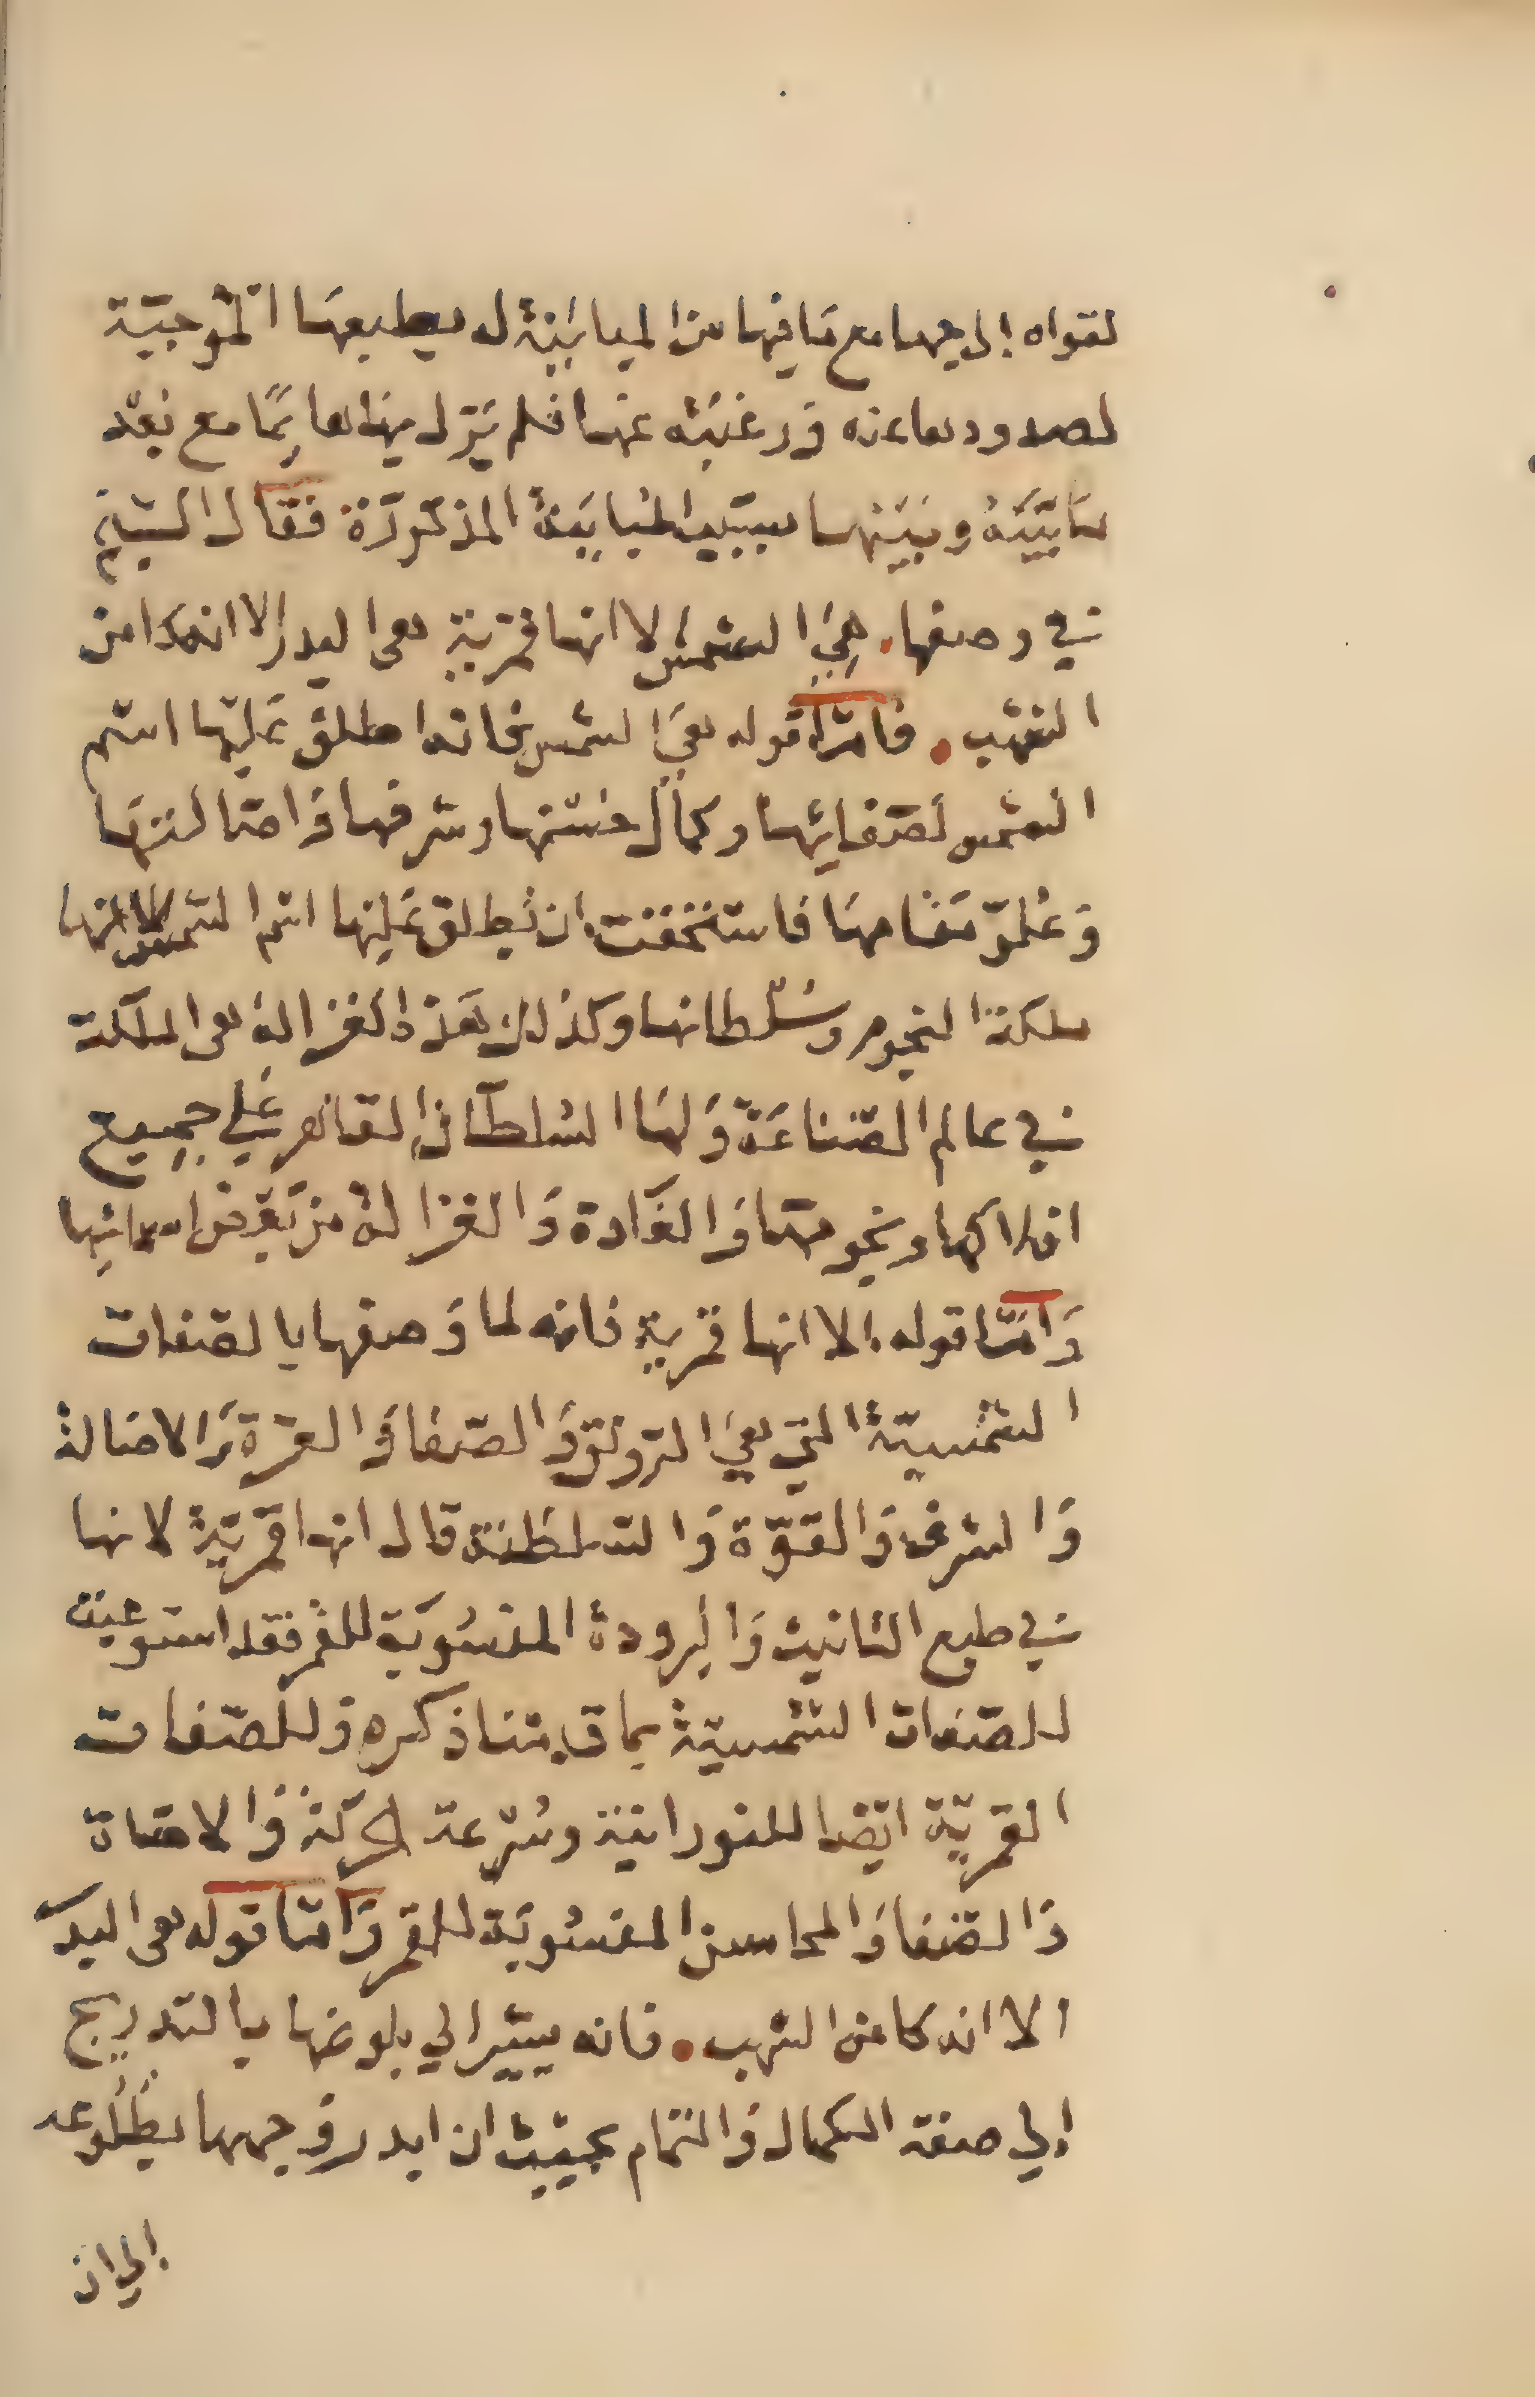 لقواه إلى جها مع مَا فيها من المباينة له بطبعهَا المُوجبَة
لصدودها عنه وَرغبَته عنها فلم يَزل بها هائِمًا مع بُعْد
مَا بَيَنهُ وبَيَنها بسَبَب المُبَايَنة المذكورَة فقَال الشيخ
في وصفها. هِيَ الشمس إلا انها قمريّة هى البدر إلا انه كامن
الشهب. فامّا قوله هيَ الشمس فانه اطلق عَليها اسْم
الشمس لصَفائِها وكمال حسْنها وشرفها وَاصَالتها
وَعُلوّ مَقامهَا فاستحقت ان يُطلق عَليها اسم الشمس لانها
ملكة النجوم وسُلطانها وكذلك هَذه الغزالة هى الملكة
في عالم الصّناعَة وَلهَا السُلطَان القاهر عَلي جميع
افلاكها ونجومها وَالغَادة وَالغزالة من بَعْض اسمائِها
وَامّا قوله إلا انها قمرية فانه لما وَصفها بالصّفات
الشمسيّة التي هيَ الرونق وَالصّفا وَالعزة وَالاصَالة
وَالشرف وَالقوّة وَالسّلطنة قال انها قمريّة لانها
في طبع التانيث وَالبرودة المنسُوبَة للقمر فقد استوعبت
للصّفات الشمسيّة بما قدّمنا ذكره وَللصّفات
القمريّة ايضا للنورانيّة وسُرعة الحركة وَالاضاة
وَالصّفا وَالمحاسن المنسُوبَة للقمر وَامّا قوله هى البدر
الا انه كامن الشهب. فانه يشير الي بلوغها بالتدريج
إلي صفة الكمال وَالتمام بحيث ان ابدر وَجهها بطلوعه
إلي ان